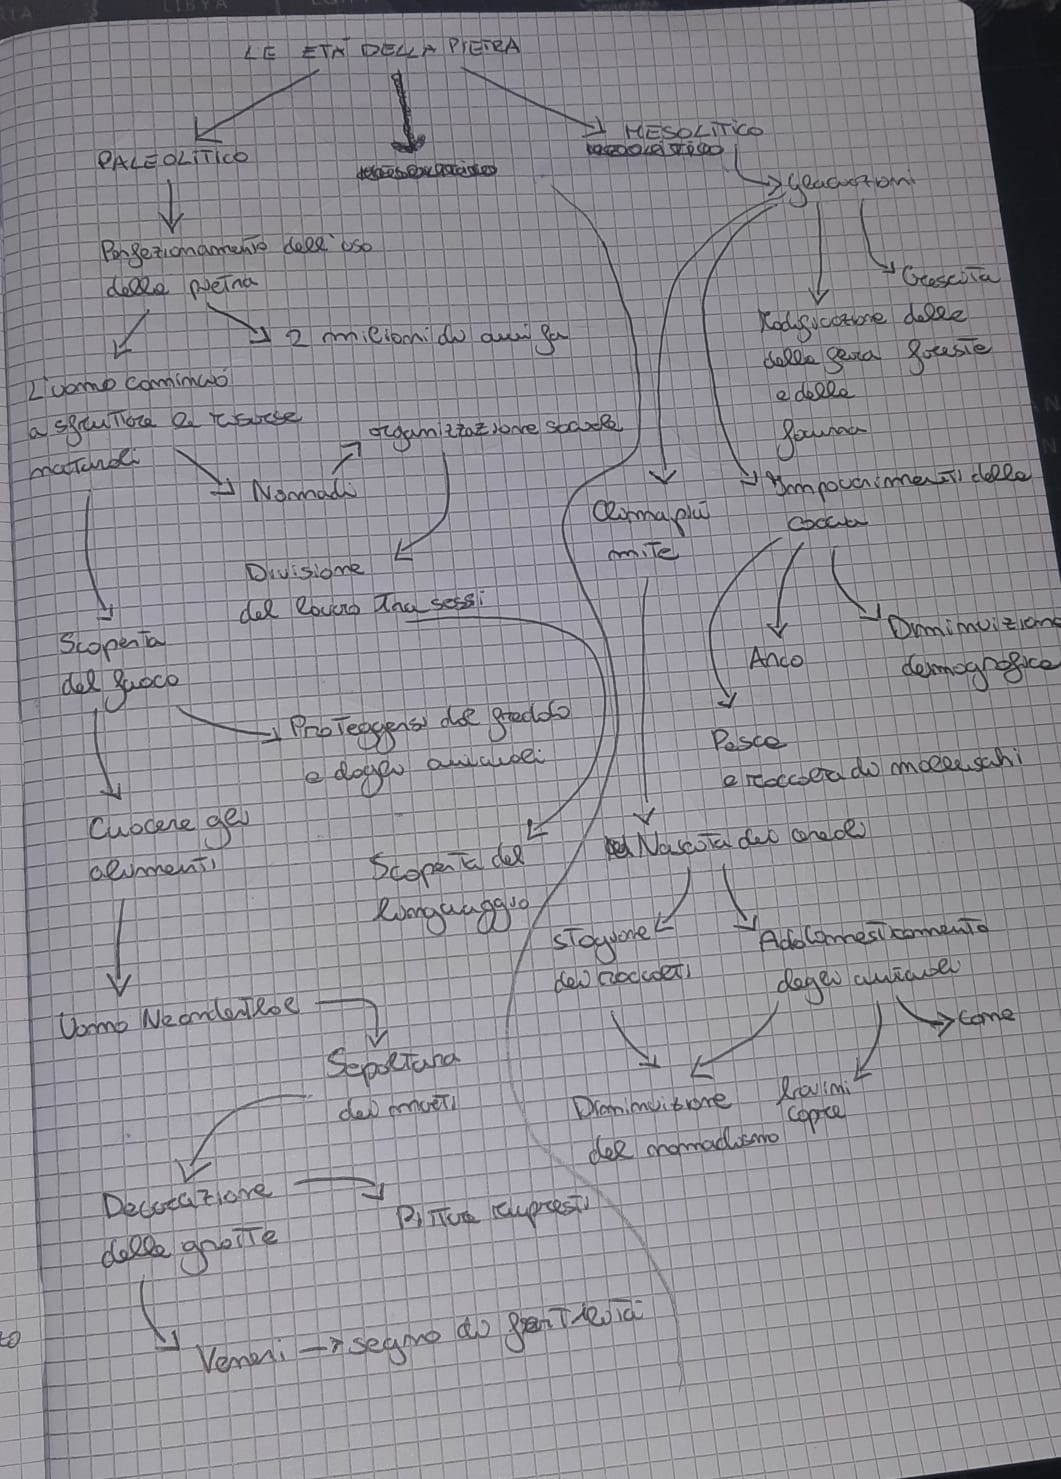 LE ETÀ DELLA PIETRA
PALEOLITICO
MESOLITICO
glaciazioni
Perfezionamento dell'uso
della pietra
2 milioni di anni fa
Crescita
delle
foreste
Modificazione
della flora
e della
fauna
L'uomo cominciò
a sfruttare le risorse
naturali
organizzazione sociale
Nomadi
Divisione
del lavoro tra sessi
Clima più
mite
Impoverimenti della
caccia
Diminuizione
demografica
Arco
Pesca
e raccolta di molluschi
Scoperta
del fuoco
Proteggersi dal freddo
e dagli animali
Cuocere gli
alimenti
Scoperta del
linguaggio
Nascita dei cereali
stagione
dei raccolti
Addomesticamento
degli animali
cane
Uomo Neanderthal
Sepoltura
dei morti
Diminuizione
del nomadismo
capre
Decorazione
delle grotte
Pitture rupestri
Veneri → segno di fertilità